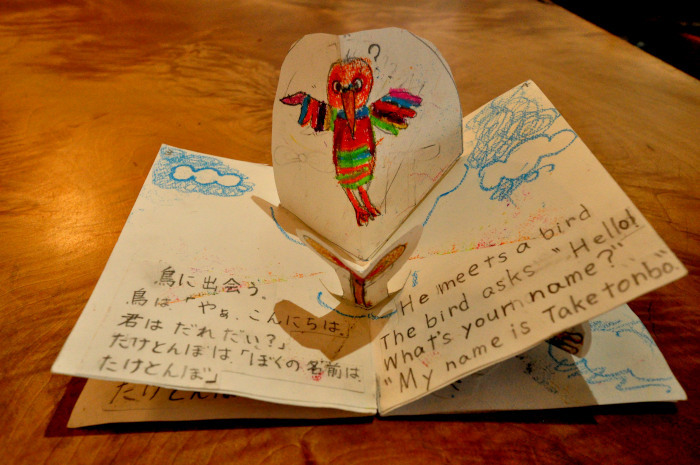 ?
鳥に出会う。
鳥は「やぁ、こんにちは。
君はだれだい?」
たけとんぼは「ぼくの名前は
たけとんぼ」
たけとんぼ
He meets a bird
The bird asks "Hello!
What's your name?"
"My name is Taketonbo."